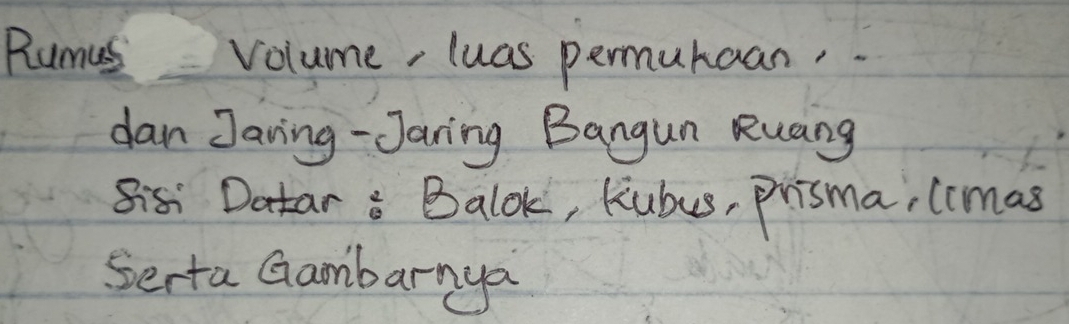 Rumus Volume, luas permukaan, -
dan Jaring-Jaring Bangun Ruang
Sisi Datar : Balok, Kubus, Prisma, limas
Serta Gambarnya